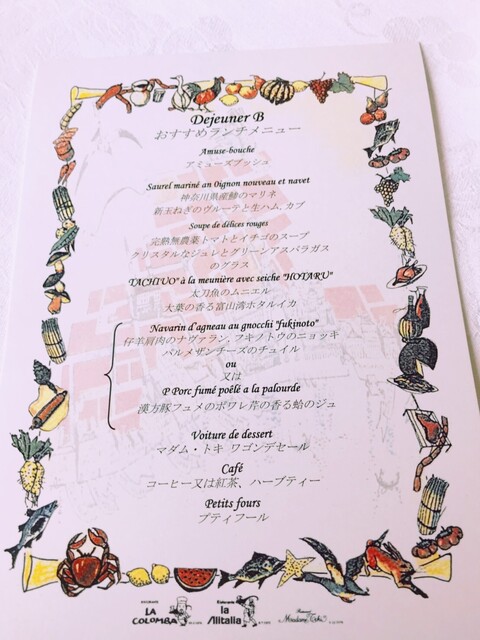 Dejeuner B
おすすめランチメニュー
Amuse-bouche
アミューズブッシュ
Saurel mariné an Oignon nouveau et navet
神奈川県産鯵のマリネ
新玉ねぎのヴルーテと生ハム、カブ
Soupe de délices rouges
完熟無農薬トマトとイチゴのスープ
クリスタルなジュレとグリーンアスパラガス
のグラス
"TACHIUO" à la meunière avec seiche "HOTARU"
太刀魚のムニエル
大葉の香る富山湾ホタルイカ
Navarin d'agneau au gnocchi "fukinoto"
仔羊肩肉のナヴァラン、フキノトウのニョッキ
パルメザンチーズのチュイル
ou
又は
P Porc fumé poêlé a la palourde
漢方豚フュメのポワレ芹の香る蛤のジュ
Voiture de dessert
マダム・トキ ワゴンデセール
Café
コーヒー又は紅茶、ハーブティー
Petits fours
プティフール
LA COLOMBA
la Alitalia
Madame Toki